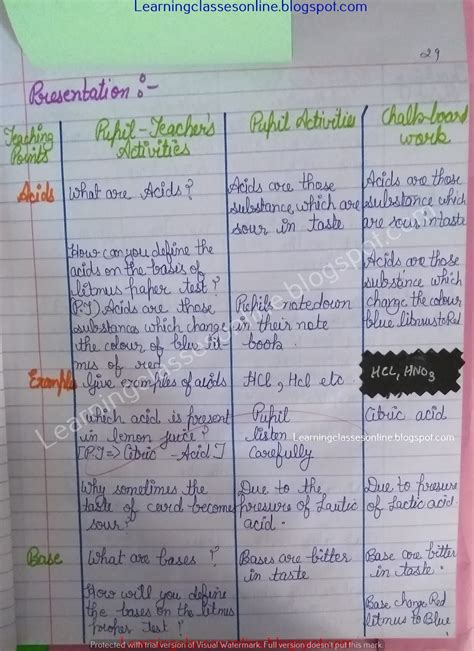 Learningclassesonline.blogspot.com
29
Presentation :-
Teaching
Points
Pupil-Teacher's
Activities
Pupil Activities
Chalkboard
work
Acids
What are Acids?
Acids are those
substance, which are
sour in taste
Acids are those
substance which
are sous intaste
How can you define the
acids on the basis of
litmus paper test?
(P.T) Acids are those
substances which change
the colour of blue lit
mus of reer
Pupils notedown
in their note
book.
Acids are those
substince which
change the colour
blue litnustoRed
Example
Give examples of acids
HCl, Hcl etc.
HCL, HNO3
Which acid is present
in lemon juice?
[P.T=> Citric -Acid]
Pupil
listen
Carefully
Citric acid
Learningclassesonline.blogspot.com
Learningclassesonline.blogspot.com
Why sometimes the
taste of curd becomes
sour?
Due to the
presure of Lautic
acid.
Due to presure
of Lactic acid.
Base
What are bases?
Bases are bitter
in taste
Base are bitter
in taste.
How will you define
the bases on the litmus
paper Test!
Base change Red
litmus to Blue
Protected with trial version of Visual Watermark. Full version doesn't put this mark.